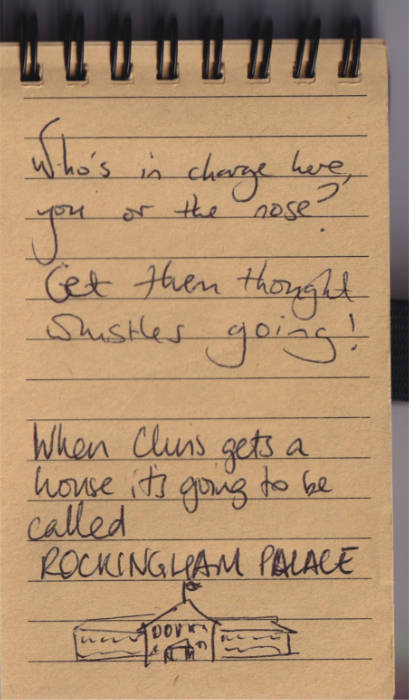 Who's in charge here,
you or the nose?
Get them thought
whistles going!
When Chris gets a
house it's going to be
called
ROCKINGHAM PALACE